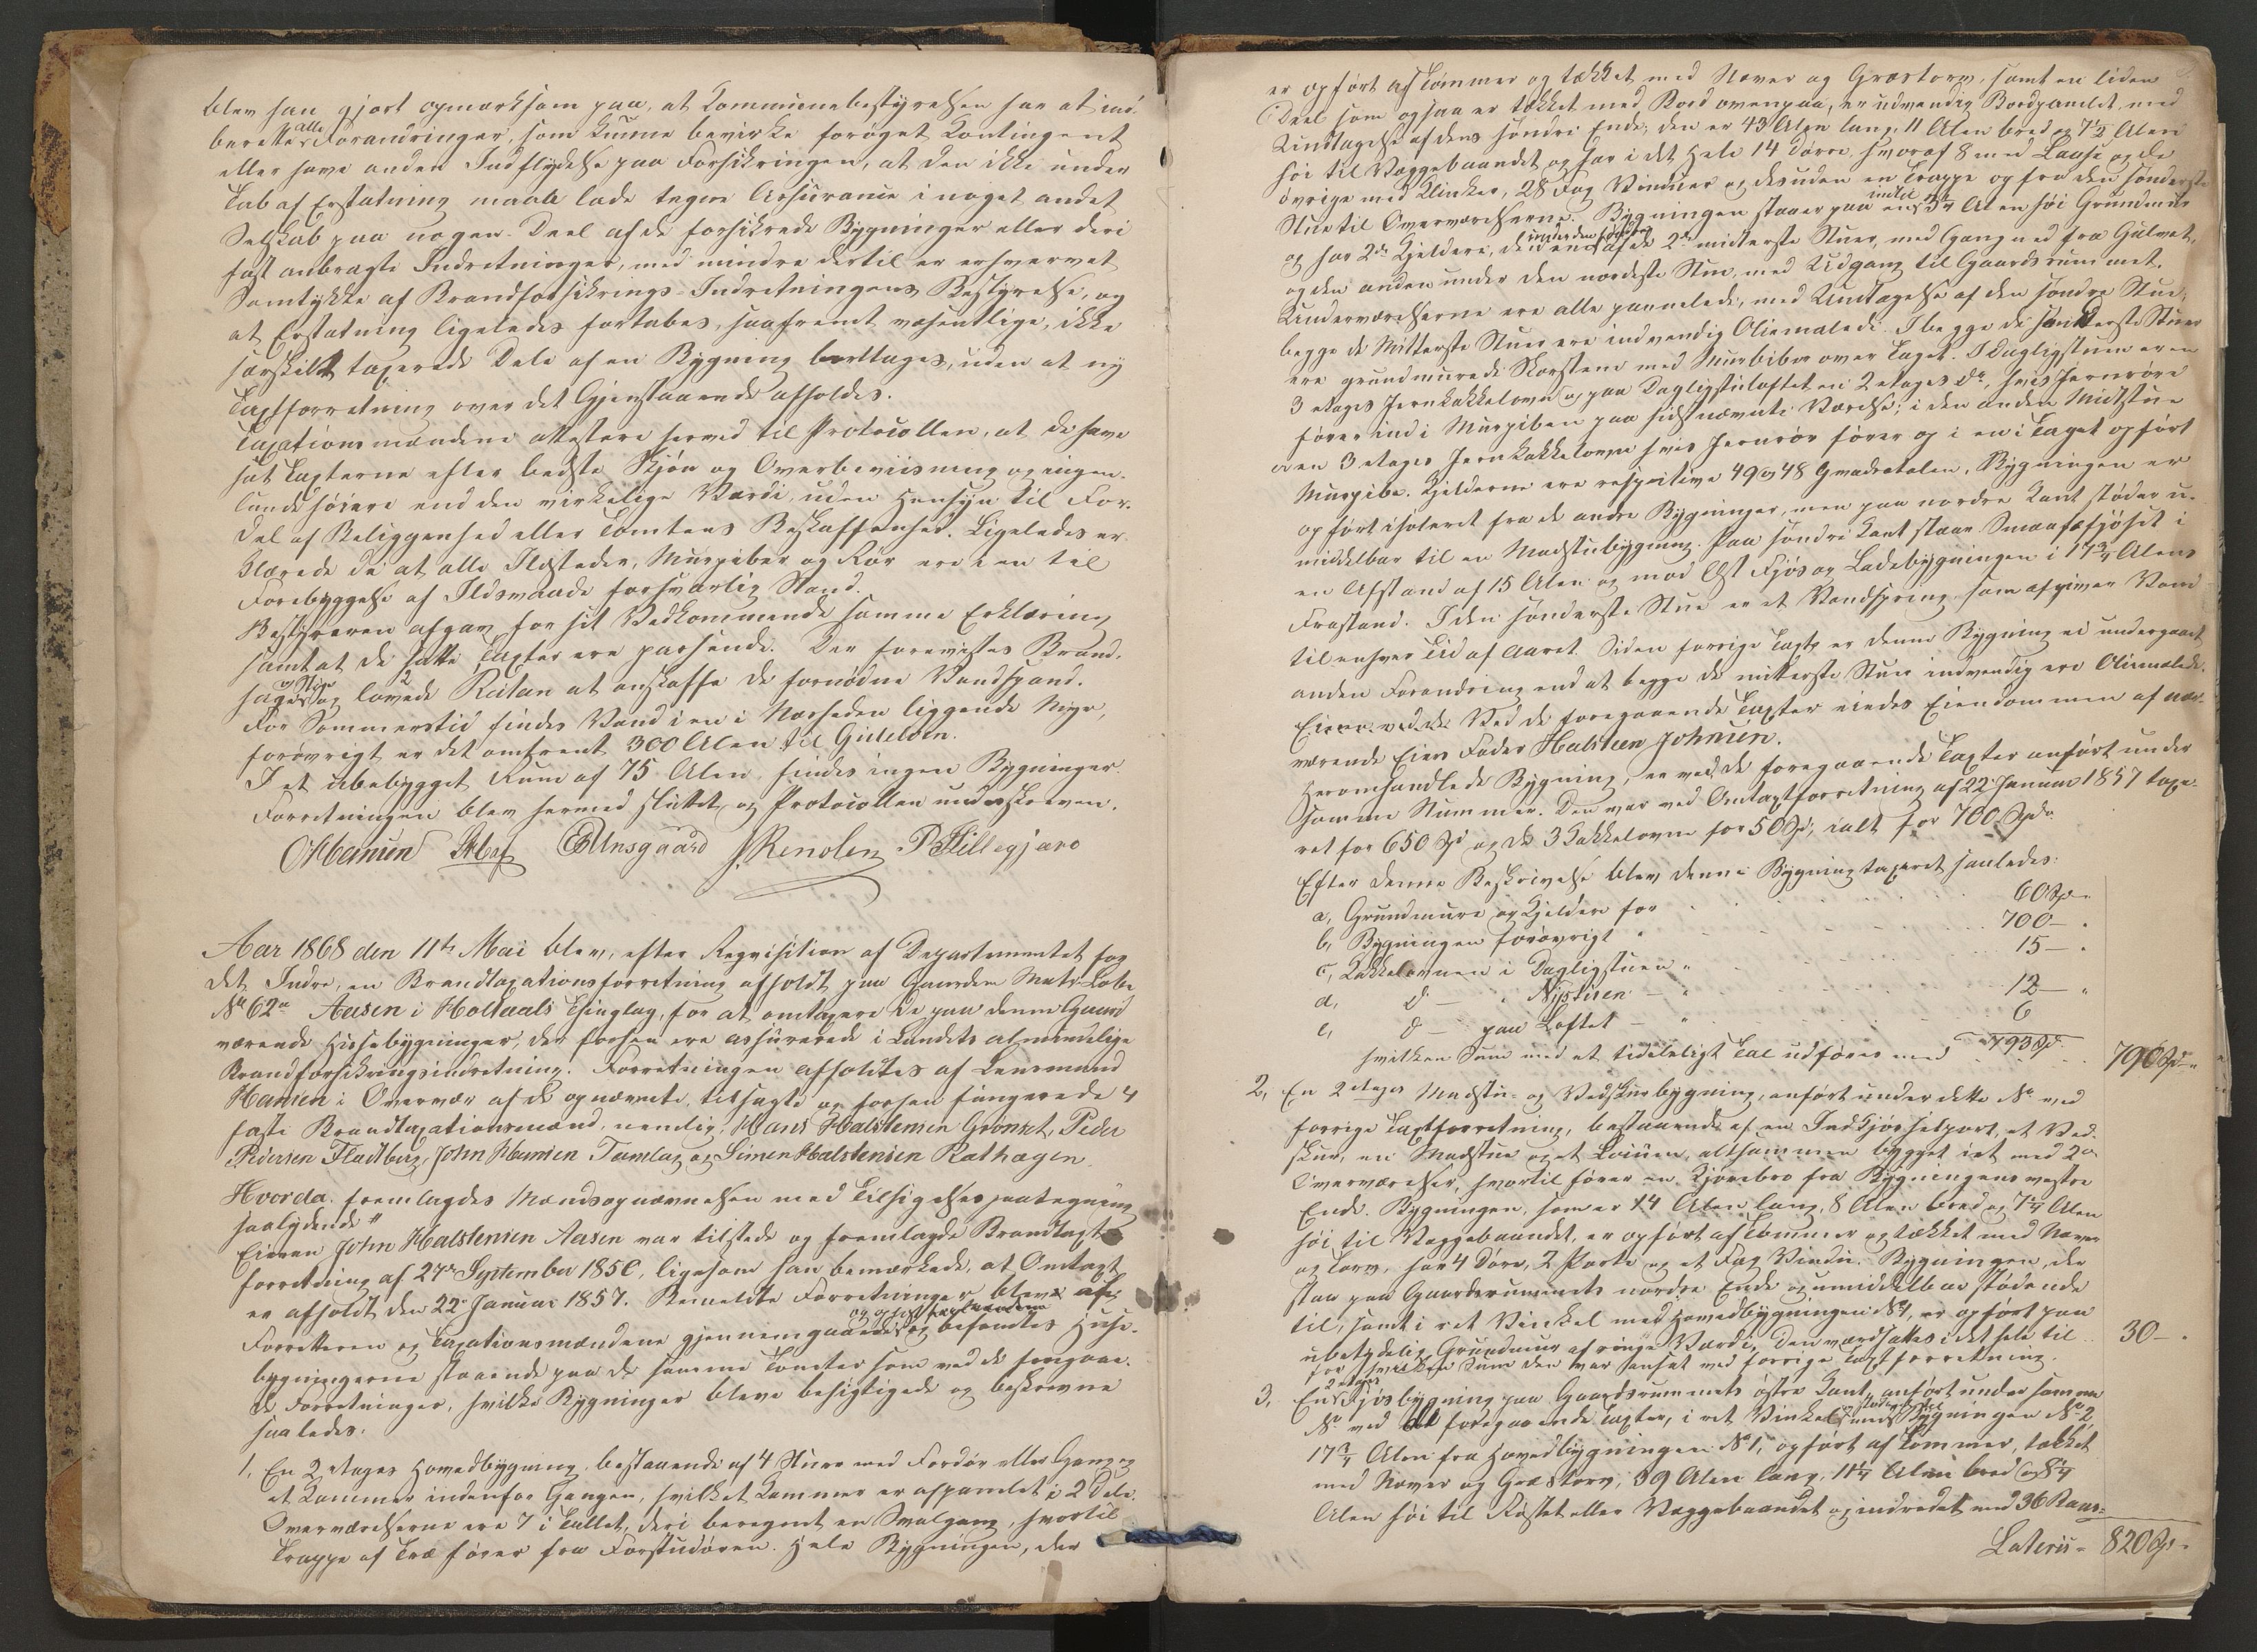 blev han gjort opmærksom paa, at Kommunebestyrelsen har at ind-
berette alle Forandringer, som kunne bevirke forøget Kontingent
eller have anden Indflydelse paa Forsikringen, at den ikke under
Tab af Erstatning maa lade tegne Assurance i noget andet
Selskab paa nogen Deel af de forsikrede Bygninger eller deri
fast anbragte Indretninger, med mindre dertil er erhvervet
Samtykke af Brandforsikrings-Indretningens Bestyrelse, og
at Erstatning ligeledes fortabes, saafremt væsentlige, ikke
særskilt taxerede Dele af en Bygning borttages, uden at ny
Taxtforretning over det Gjenstaaende afholdes.
Taxationsmændene attestere herved til Protocollen, at de have
sat Taxterne efter bedste Skjøn og Overbeviisning og ingen-
lunde høiere end den virkelige Værdi, uden Hensyn til For-
del af Beliggenhed eller Tomtens Beskaffenhed. Ligeledes er-
klærede de at alle Ildsteder, Murpiber og Rør ere i en til
Forebyggelse af Ildsvaade forsvarlig Stand.
Bestyreren afgav for sit Vedkommende samme Erklæring
samt at de satte Taxter ere passende. Der forevistes Brand-
hage og Stige og lovede Reitan at anskaffe de fornødne 2 Vandspand.
For Sommerstid findes Vand i en i Nærheden liggende Myr,
forøvrigt er det omtrent 300 Alen til Gulelven.
I et ubebygget Rum af 75 Alen findes ingen Bygninger.
Forretningen blev hermed sluttet og Protocollen underskreven.
O Hansen E Aunsgaard J. Renolen P Hillegjaro
Aar 1868 den 11te Mai blev, efter Reqvisition af Departementet for
det Indre, en Brandtaxationsforretning afholdt paa Gaarden Matr-Løbe
No 62a Aasen i Holtaals Thinglag, for at omtaxere de paa denne Gaard
værende Huusebygninger, der forhen ere assurerede i Landets almindelige
Brandforsikringsindretning. Forretningen afholdtes af Lensmand
Hansen i Overvær af de opnævnte, tilsagte og forhen fungerede 4
faste Brandtaxationsmænd, nemlig: Hans Halstensen Grønset, Peder
Pedersen Fladberg, John Hansen Tamlag og Simen Halstensen Rathagen.
Hvorda fremlagdes Mandsopnævnelsen med Tilsigelsespaategning
saalydende "
Eieren John Halstensen Aasen var tilstede og fremlagde Brandtaxt-
forretning af 27de September 1850, ligesom han bemærkede, at Omtaxt
er afholdt den 22de Januar 1857. Bemeldte Forretninger bleve af
Forretteren og Taxationsmændene gjennemgaaede og befandtes Huse-
bygningerne staaende paa de samme Tomter som ved de foregaae-
de Forretninger, hvilke Bygninger bleve besigtigede og beskrevne
saaledes:
1, En 2 etages Hovedbygning bestaaende af 4 Stuer med Fordør eller Gang og
et Kammer indenfor Gangen, hvilket Kammer er afpanelet i 2 Dele.
Overværelserne ere 7 i Tallet, deri beregnet en Svalgang, hvortil
Trappe af Træ fører fra Forstudøren. Hele Bygningen, der
er opført af Tømmer og tækket med Næver og Græstorv, samt en liden
Deel som ogsaa er tækket med Bord ovenpaa, er udvendig Bordpanelet med
Undtagelse af dens søndre Ende; den er 43 Alen lang, 11 Alen bred og 7½ Alen
høi til Væggebaandet og har i det Hele 14 Dørre, hvoraf 8 med Laase og de
øvrige med Klinker, 28 Fag Vinduer og desuden en Trappe og fra den sønderste
Stue til Overværelserne. Bygningen staaer paa en indtil 3¼ Alen høi Grundmuur
og har 2de Kjeldere, den ene under den søndre af de 2de midterste Stuer, med Gang ned fra Gulvet,
og den anden under den nordeste Stue, med Udgang til Gaardsrummet.
Underværelserne ere alle pannelede, med Undtagelse af den søndre Stue,
begge de Mitterste Stuer ere indvendig Oliemalede. I begge de sønderste Stuer
ere grundmurede Skorstene med Murpiber over Taget. I Dagligstuen er en
3 etages Jernkakkelovn og paa Dagligstuloftet en 2 etages do, hvis Jernrøre
fører ind i Murpiben paa sidstnævnte Værelse; i den anden Midtstue
er en 3 etages Jernkakkelovn hvis Jernrør fører op i en i Taget opført
Murpibe. Kjelderne ere respective 49 og 48 Qvadratalen. Bygningen er
opført isoleret fra de andre Bygninger, men paa nordre Kant støder u-
middelbar til en Madstubygning. Paa søndre Kant staar Smaafæfjøset i
en Afstand af 15 Alen og mod Øst Fjøs og Ladebygningen i 17¾ Alens
Frastand. I den sønderste Stue er et Vandspring som afgiver Vand
til enhver Tid af Aaret. Siden forrige Taxt er denne Bygning ei undergaaet
anden Forandring end at begge de mitterste Stuer indvendig ere Oliemalede.
Ved de foregaaende Taxter eiedes Eiendommen af nær-
værende Eiers Fader Halsteen Johnsen.
Heromhandlede Bygning, er ved de foregaaende Taxter anført under
samme Nummer. Den var ved Omtaxtforretning af 22 Januar 1857 taxe-
ret for 650 Spd og de 3 Kakkelovne for 50 Spd, ialt for 700 Spd.
Efter denne Beskrivelse blev denne Bygning taxeret saaledes:
a, Grundmure og Kjeldere for 60 Spd
b, Bygningen forøvrigt " 700 –
c, Kakkelovnen i Dagligstuen " 15 –
d, do – i Nystuen – " 12 – "
e, do – paa Loftet – " 6
hvilken Sum med et tideleligt Tal udføres med 793 Spd 790 Spd
2, En 2 etages Madstu- og Vedskurbygning, anført under dette No ved
forrige Taxtforretning, bestaaende af en Indkjørselsport, et Ved-
skur, en Madstue og et Loium, altsammen bygget i et med 2de
Overværelser, hvortil fører en Kjørebro fra Bygningens vestre
Ende. Bygningen, som er 14 Alen lang, 8 Alen bred og 7¼ Alen
høi til Væggebaandet, er opført af Tømmer og tækket med Næver
og Torv, har 4 Døre, 2 Porte og et Fag Vindu. Bygningen, der
staar paa Gaardsrummets nordre Ende og umiddelbar stødende
til, samt i ret Vinkel med Hovedbygningen No 1, er opført paa
ubetydelig Grundmuur af ringe Værdi. Den værdsattes i det hele til 30 –
for hvilken Sum den var ansat ved forrige Taxtforretning.
3, En 2 etages Fjøsbygning paa Gaardsrummets østre Kant, anført under samme
No ved de foregaaende Taxter, i ret Vinkel med Bygningen No 2,
17¾ Alen fra Hovedbygningen No 1, opført af Tømmer, tækket
med Næver og Græstorv, 39 Alen lang, 11¼ Alen bred og 8¼
Alen høi til Røstet eller Væggebaandet og indredet med 36 Baas-
Lateris 820 Spd